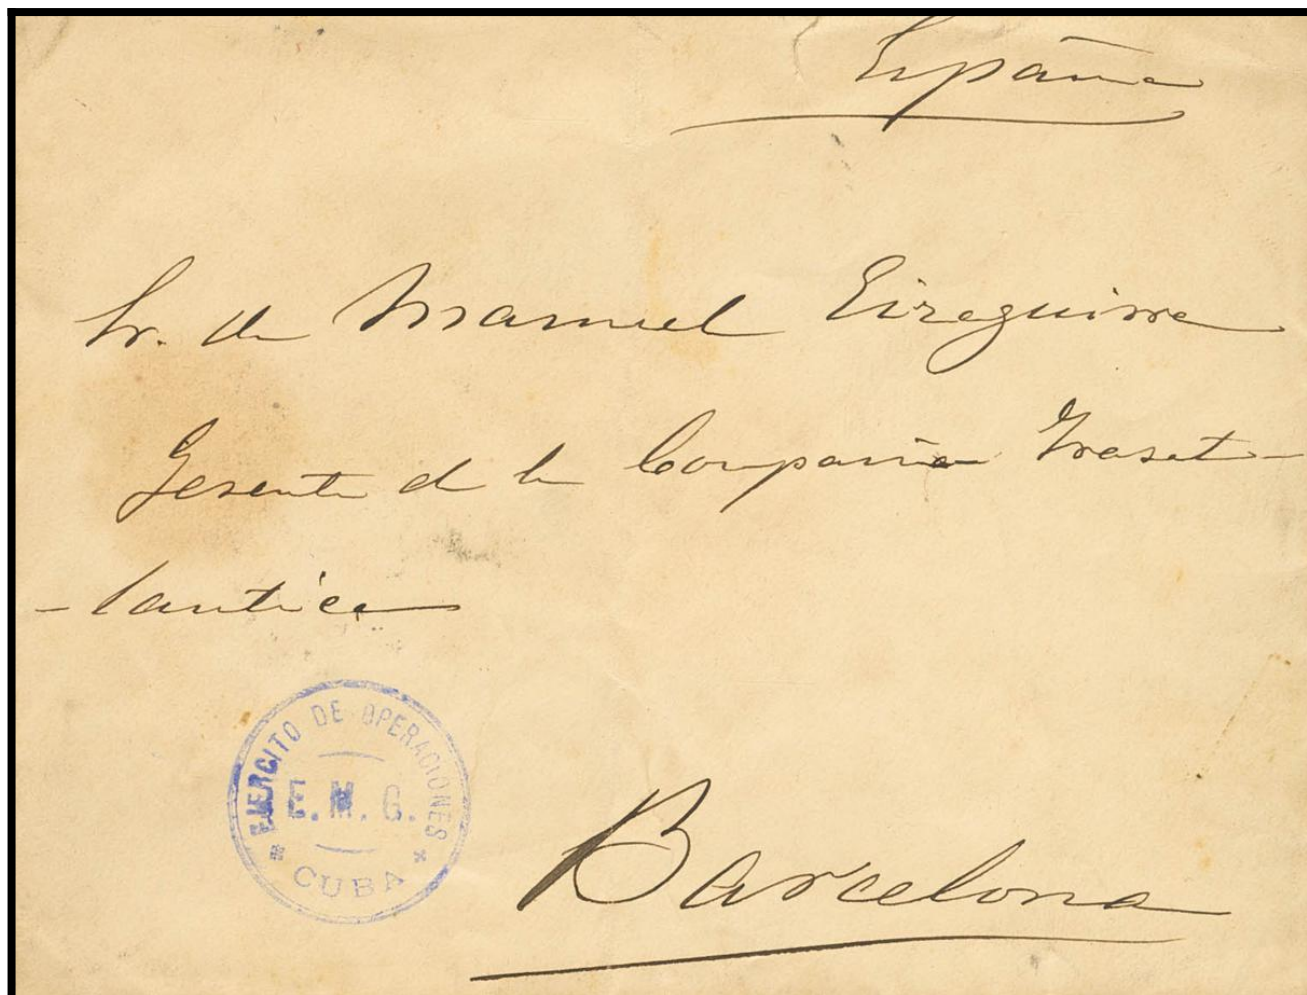 España
Sr. dn Manuel Eizeguirre
Gerente de la Compañia Trasat-
-lantica
EJERCITO DE OPERACIONES
E.M.G.
* CUBA *
Barcelona